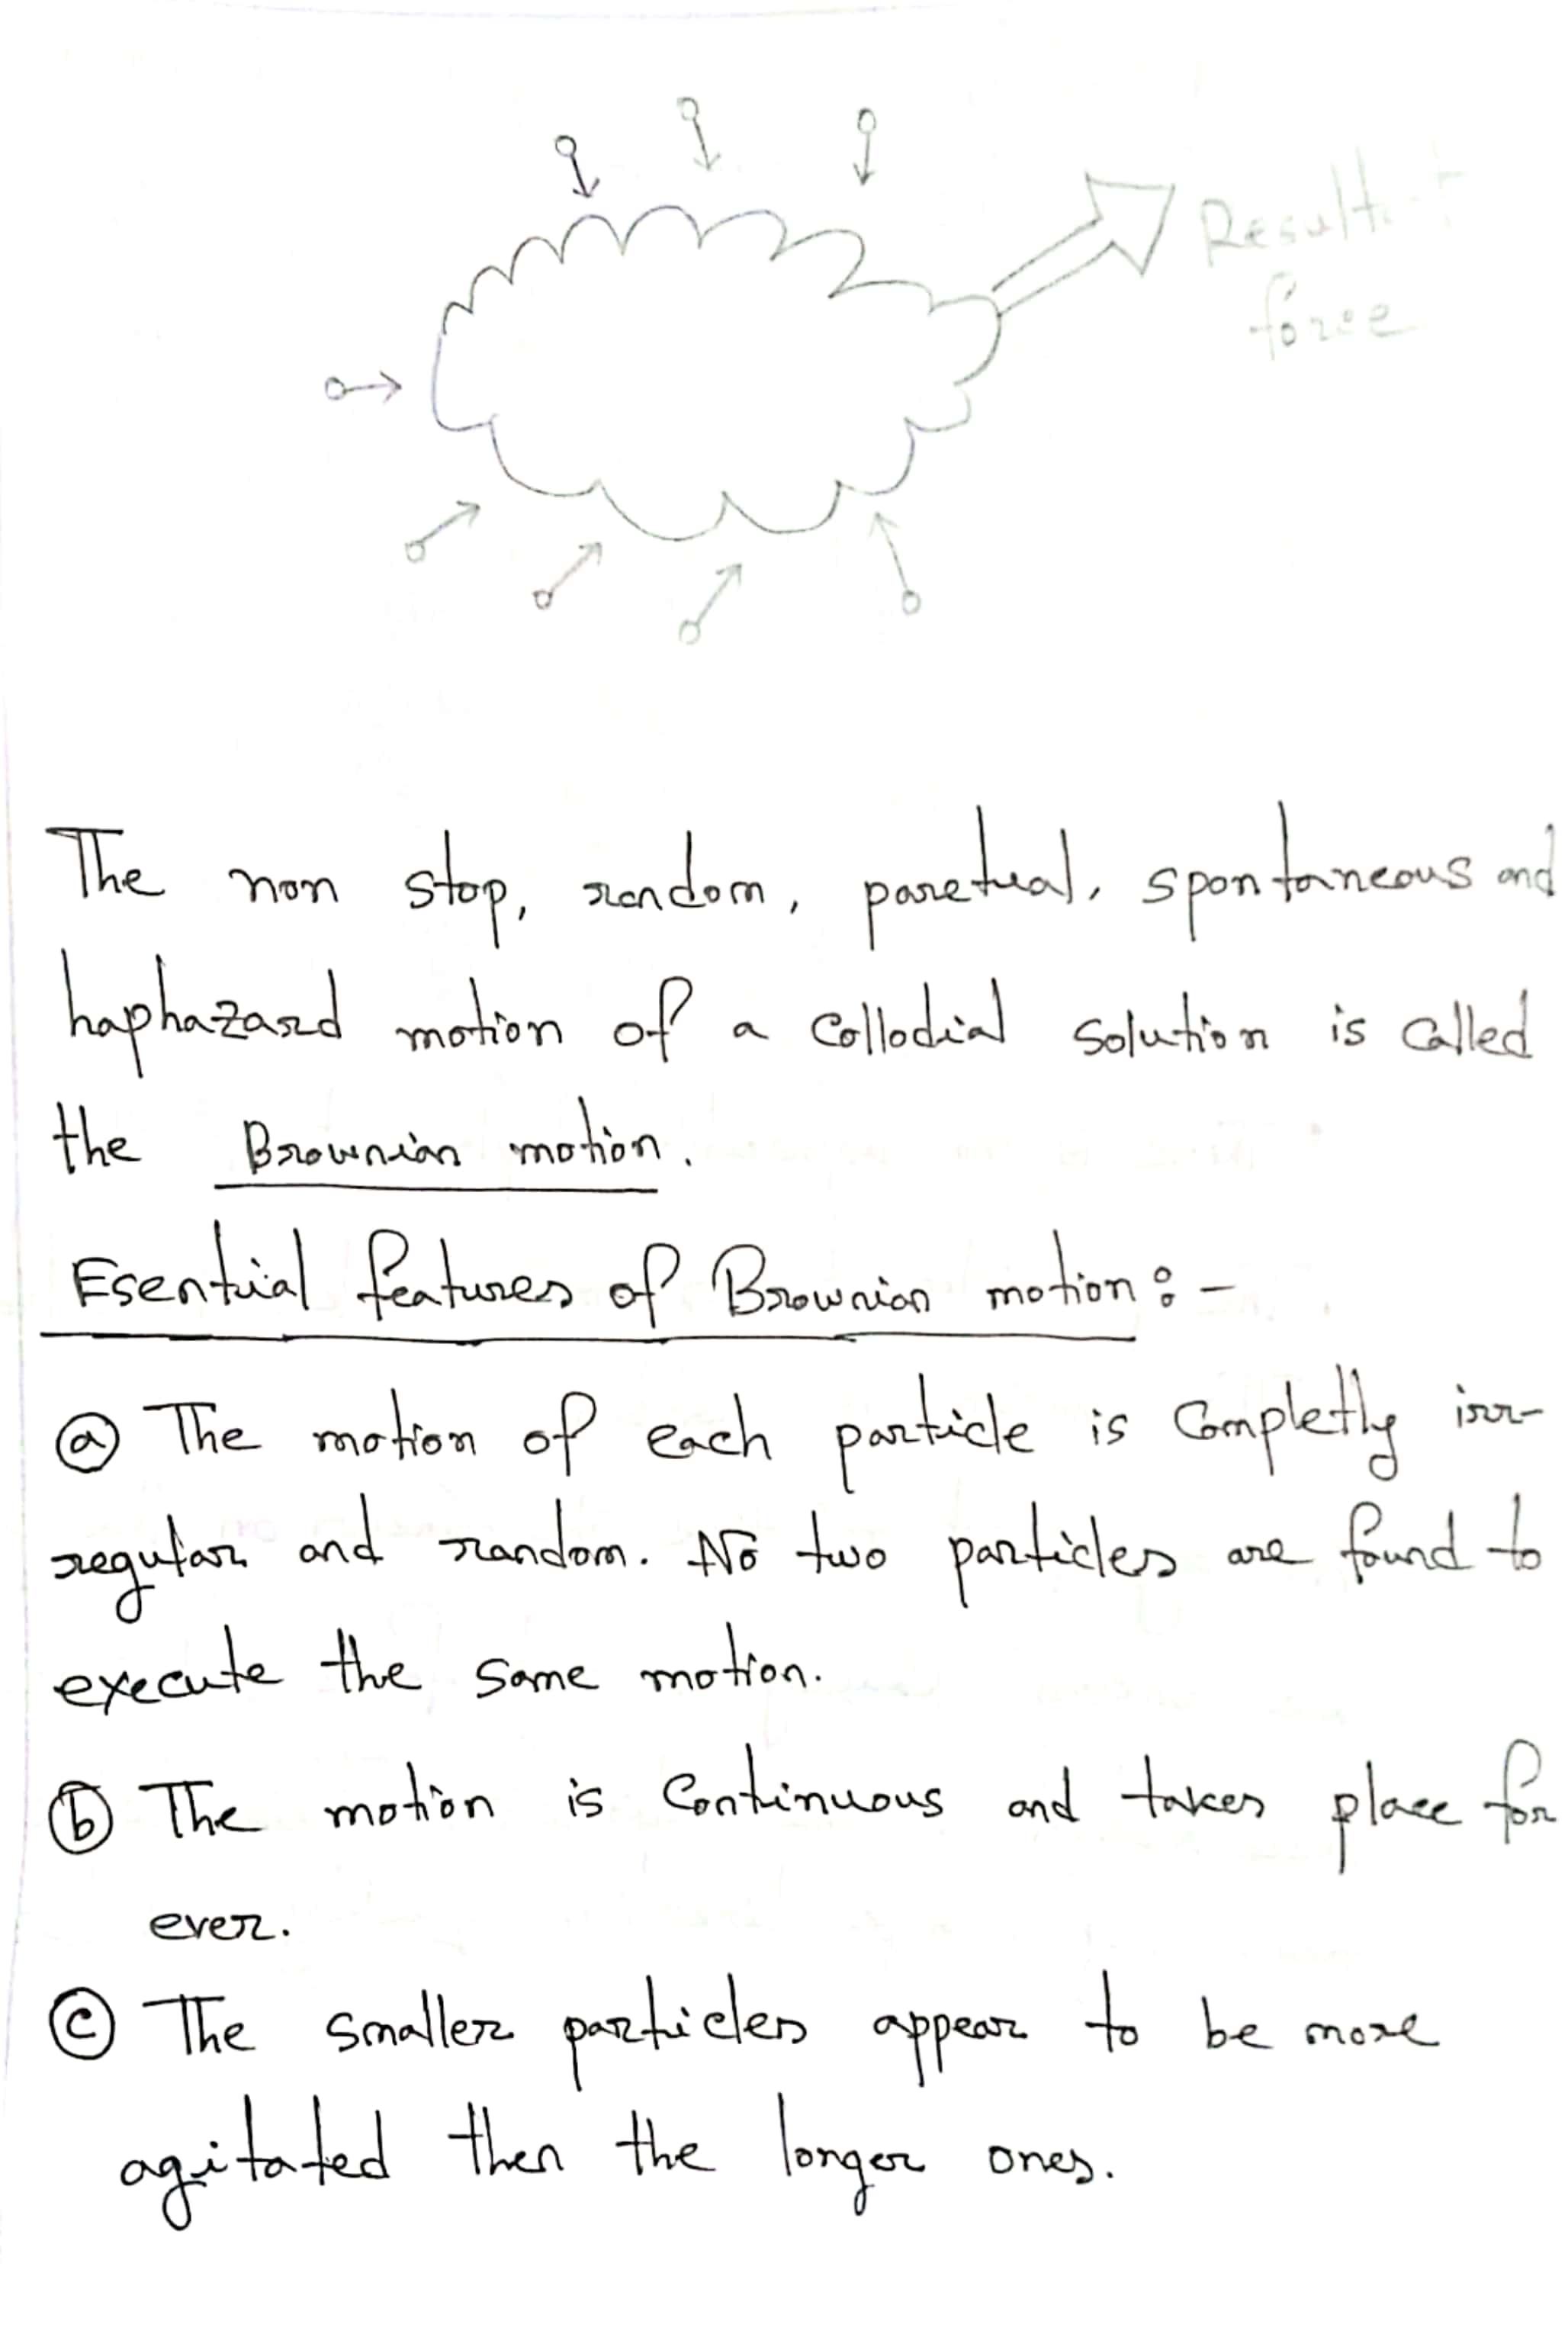 Resultant
force
The non stop, random, paretual, spontaneous and
haphazard motion of a Collodial solution is called
the Brownian motion.
Esential features of Brownian motion:-
(a) The motion of each particle is Completly irr-
regular and random. No two particles are found to
execute the same motion.
(b) The motion is Continuous and takes place for
ever.
(c) The smaller particles appear to be more
agitated then the longer ones.